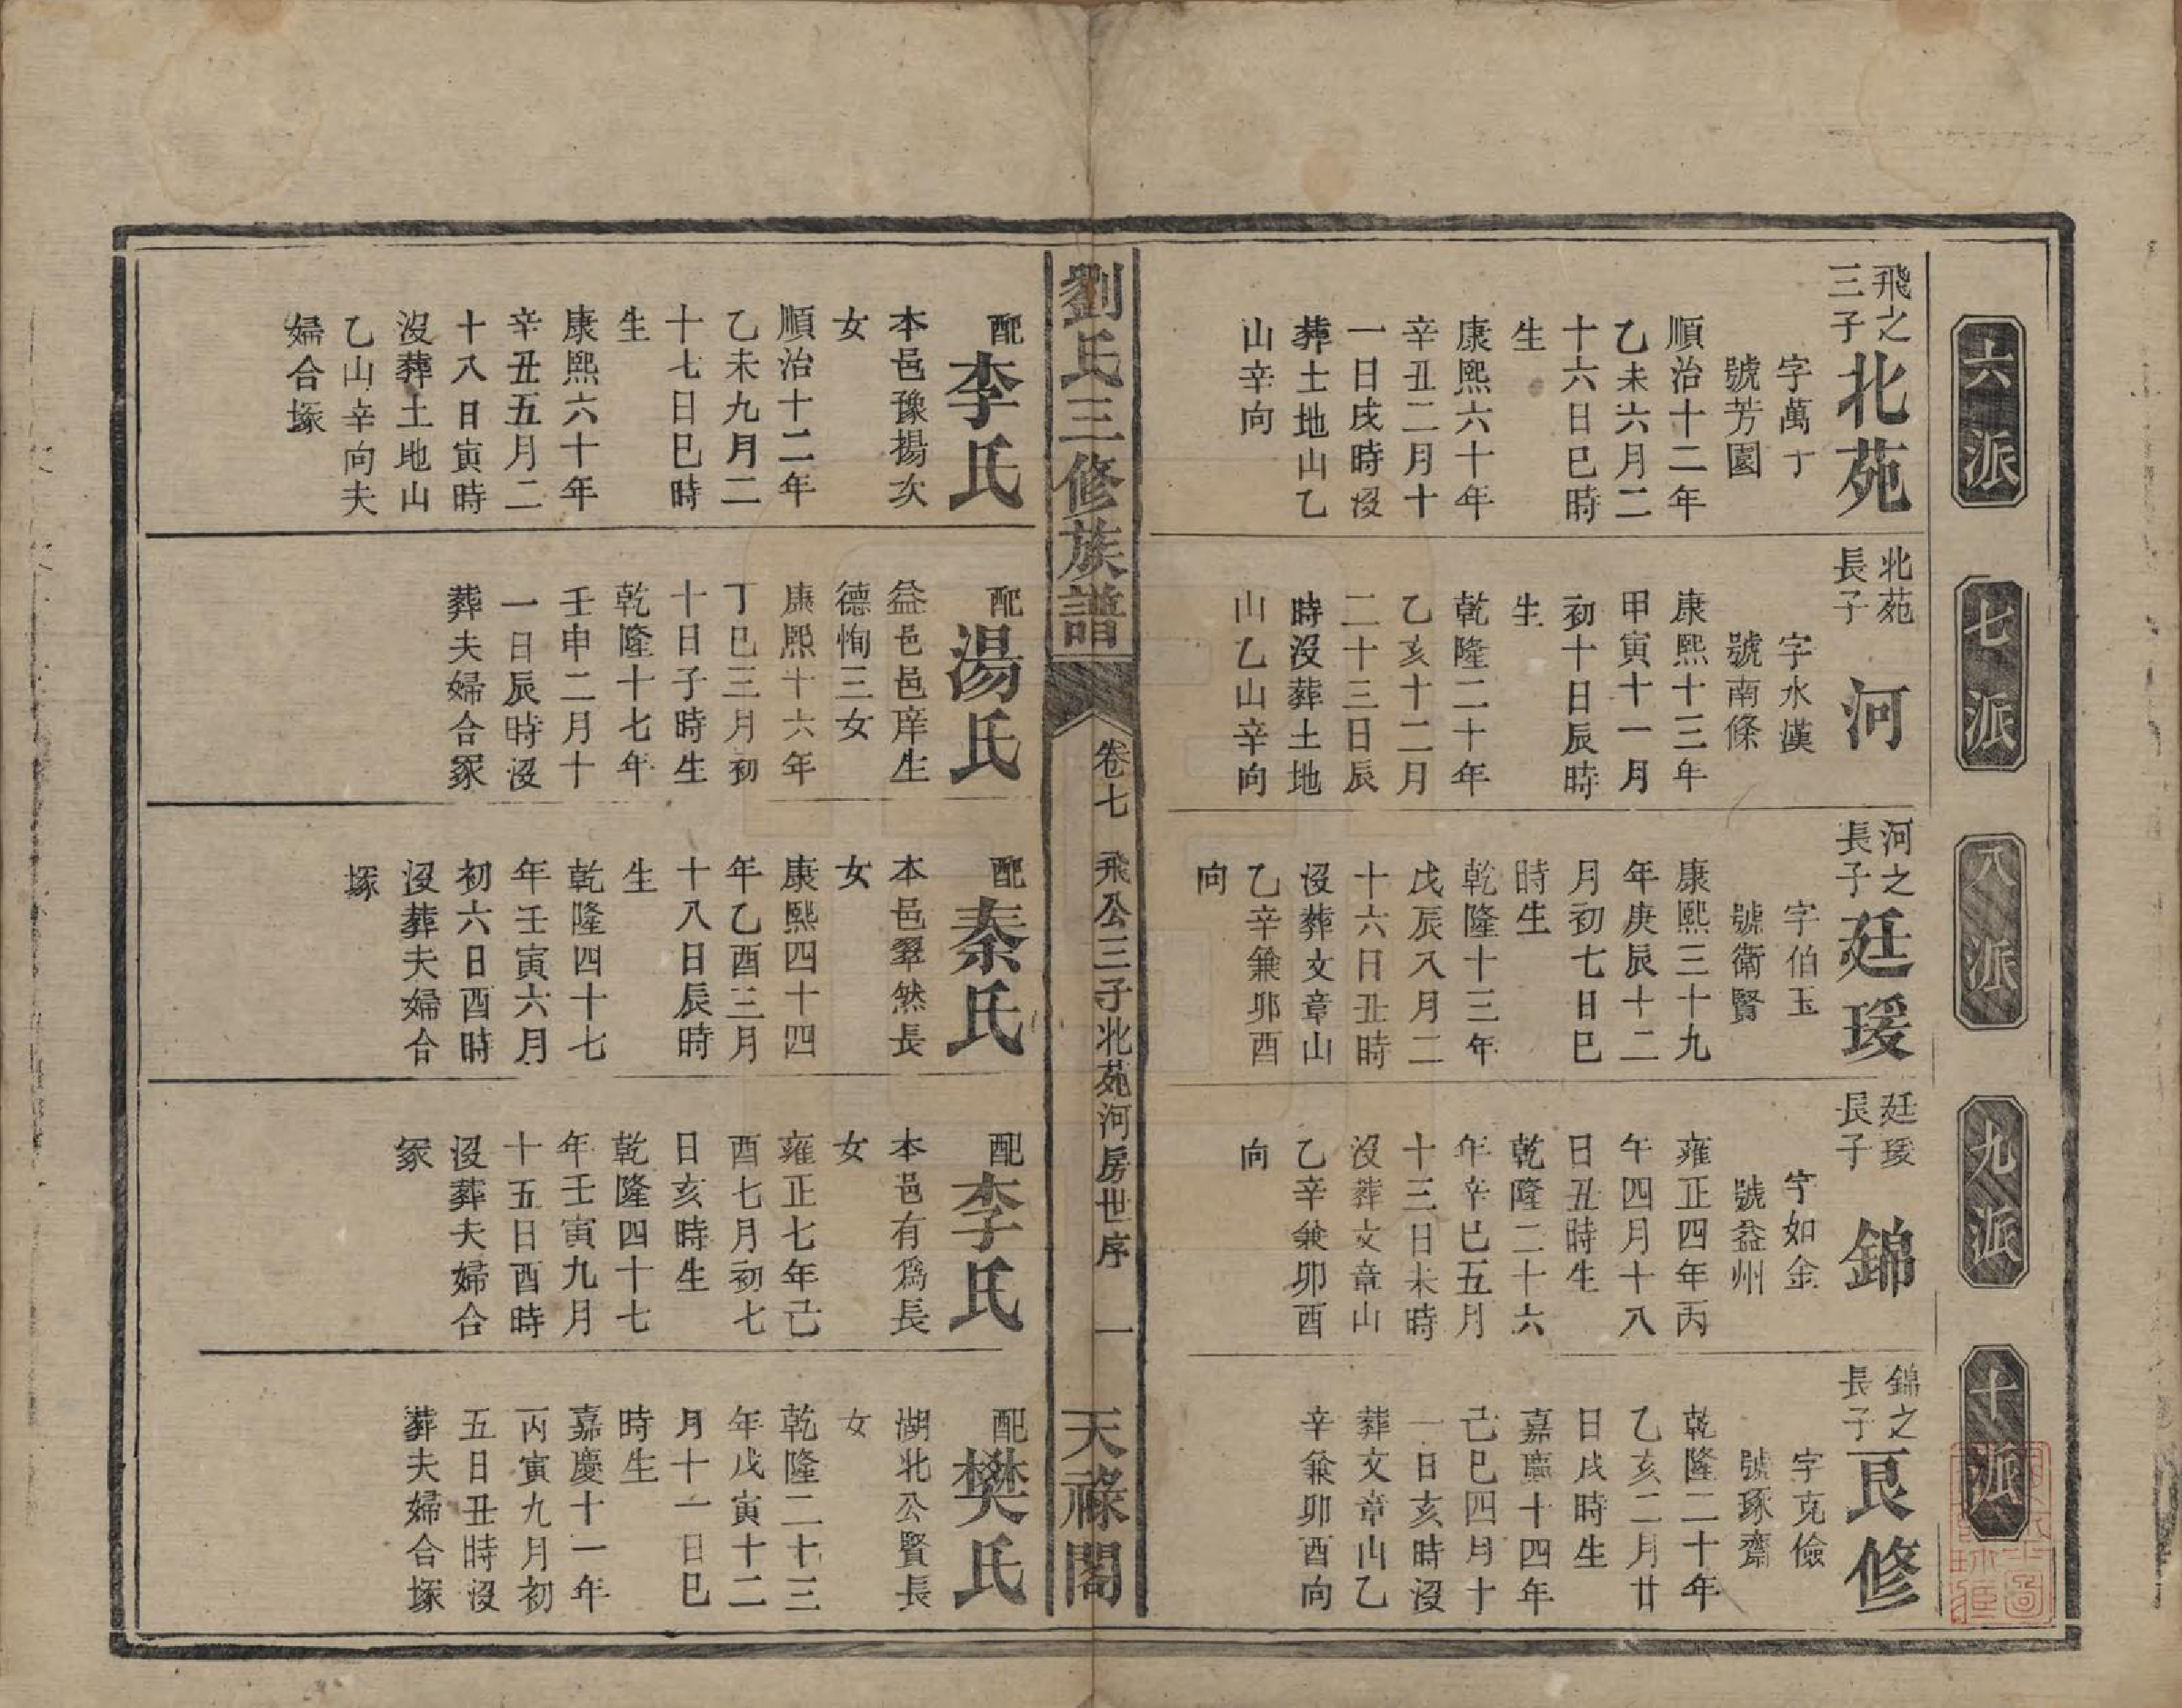 六派
飛之
三子
北苑
字萬丁
號芳園
順治十二年
乙未六月二
十六日巳時
生
康熙六十年
辛丑二月十
一日戌時沒
葬土地山乙
山辛向
七派
北苑
長子
河
字水漢
號南條
康熙十三年
甲寅十一月
初十日辰時
生
乾隆二十年
乙亥十二月
二十三日辰
時沒葬土地
山乙山辛向
八派
河之
長子
廷瑗
字伯玉
號衛賢
康熙三十九
年庚辰十二
月初七日巳
時生
乾隆十三年
戊辰八月二
十六日丑時
沒葬文章山
乙辛兼卯酉
向
九派
廷瑗
長子
錦
字如金
號益州
雍正四年丙
午四月十八
日丑時生
乾隆二十六
年辛巳五月
十三日未時
沒葬文章山
乙辛兼卯酉
向
十派
錦之
長子
良修
字克儉
號琢齋
乾隆二十年
乙亥二月廿
日戌時生
嘉慶十四年
己巳四月十
一日亥時沒
葬文章山乙
辛兼卯酉向
劉氏三修族譜
卷七
飛公三子北苑河房世序
一
天祿閣
配
李氏
本邑豫揚次
女
順治十二年
乙未九月二
十七日巳時
生
康熙六十年
辛丑五月二
十八日寅時
沒葬土地山
乙山辛向夫
婦合塚
配
湯氏
益邑邑庠生
德恂三女
康熙十六年
丁巳三月初
十日子時生
乾隆十七年
壬申二月十
一日辰時沒
葬夫婦合冢
配
秦氏
本邑翠然長
女
康熙四十四
年乙酉三月
十八日辰時
生
乾隆四十七
年壬寅六月
初六日酉時
沒葬夫婦合
塚
配
李氏
本邑有爲長
女
雍正七年己
酉七月初七
日亥時生
乾隆四十七
年壬寅九月
十五日酉時
沒葬夫婦合
冢
配
樊氏
湖北公賢長
女
乾隆二十三
年戊寅十二
月十一日巳
時生
嘉慶十一年
丙寅九月初
五日丑時沒
葬夫婦合塚